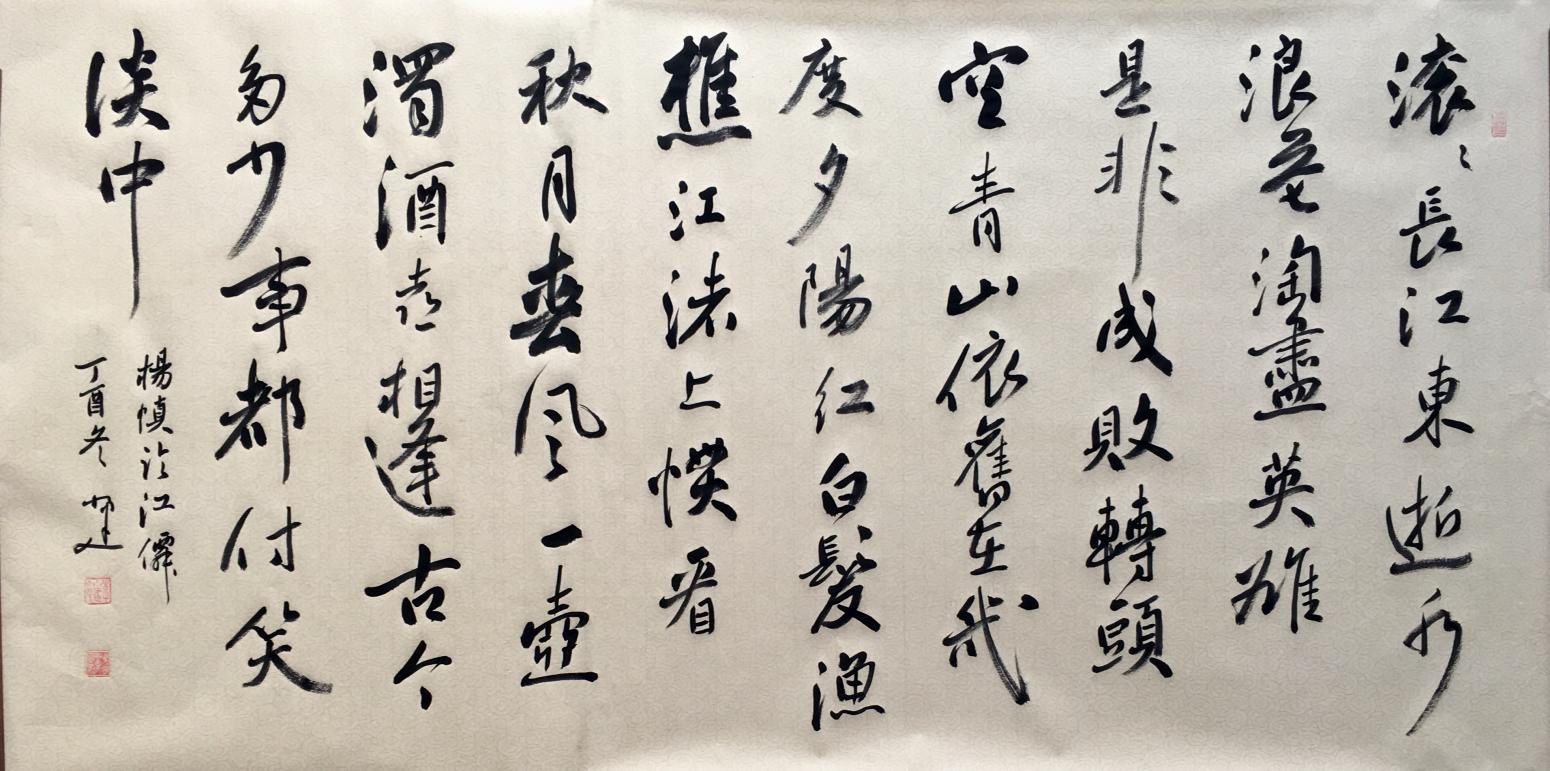 滚〻長江東逝水
浪花淘盡英雄
是非成敗轉頭
空青山依舊在幾
度夕陽紅白髮漁
樵江渚上慣看
秋月春風一壺
濁酒喜相逢古今
多少事都付笑
谈中
楊慎臨江僊
丁酉冬